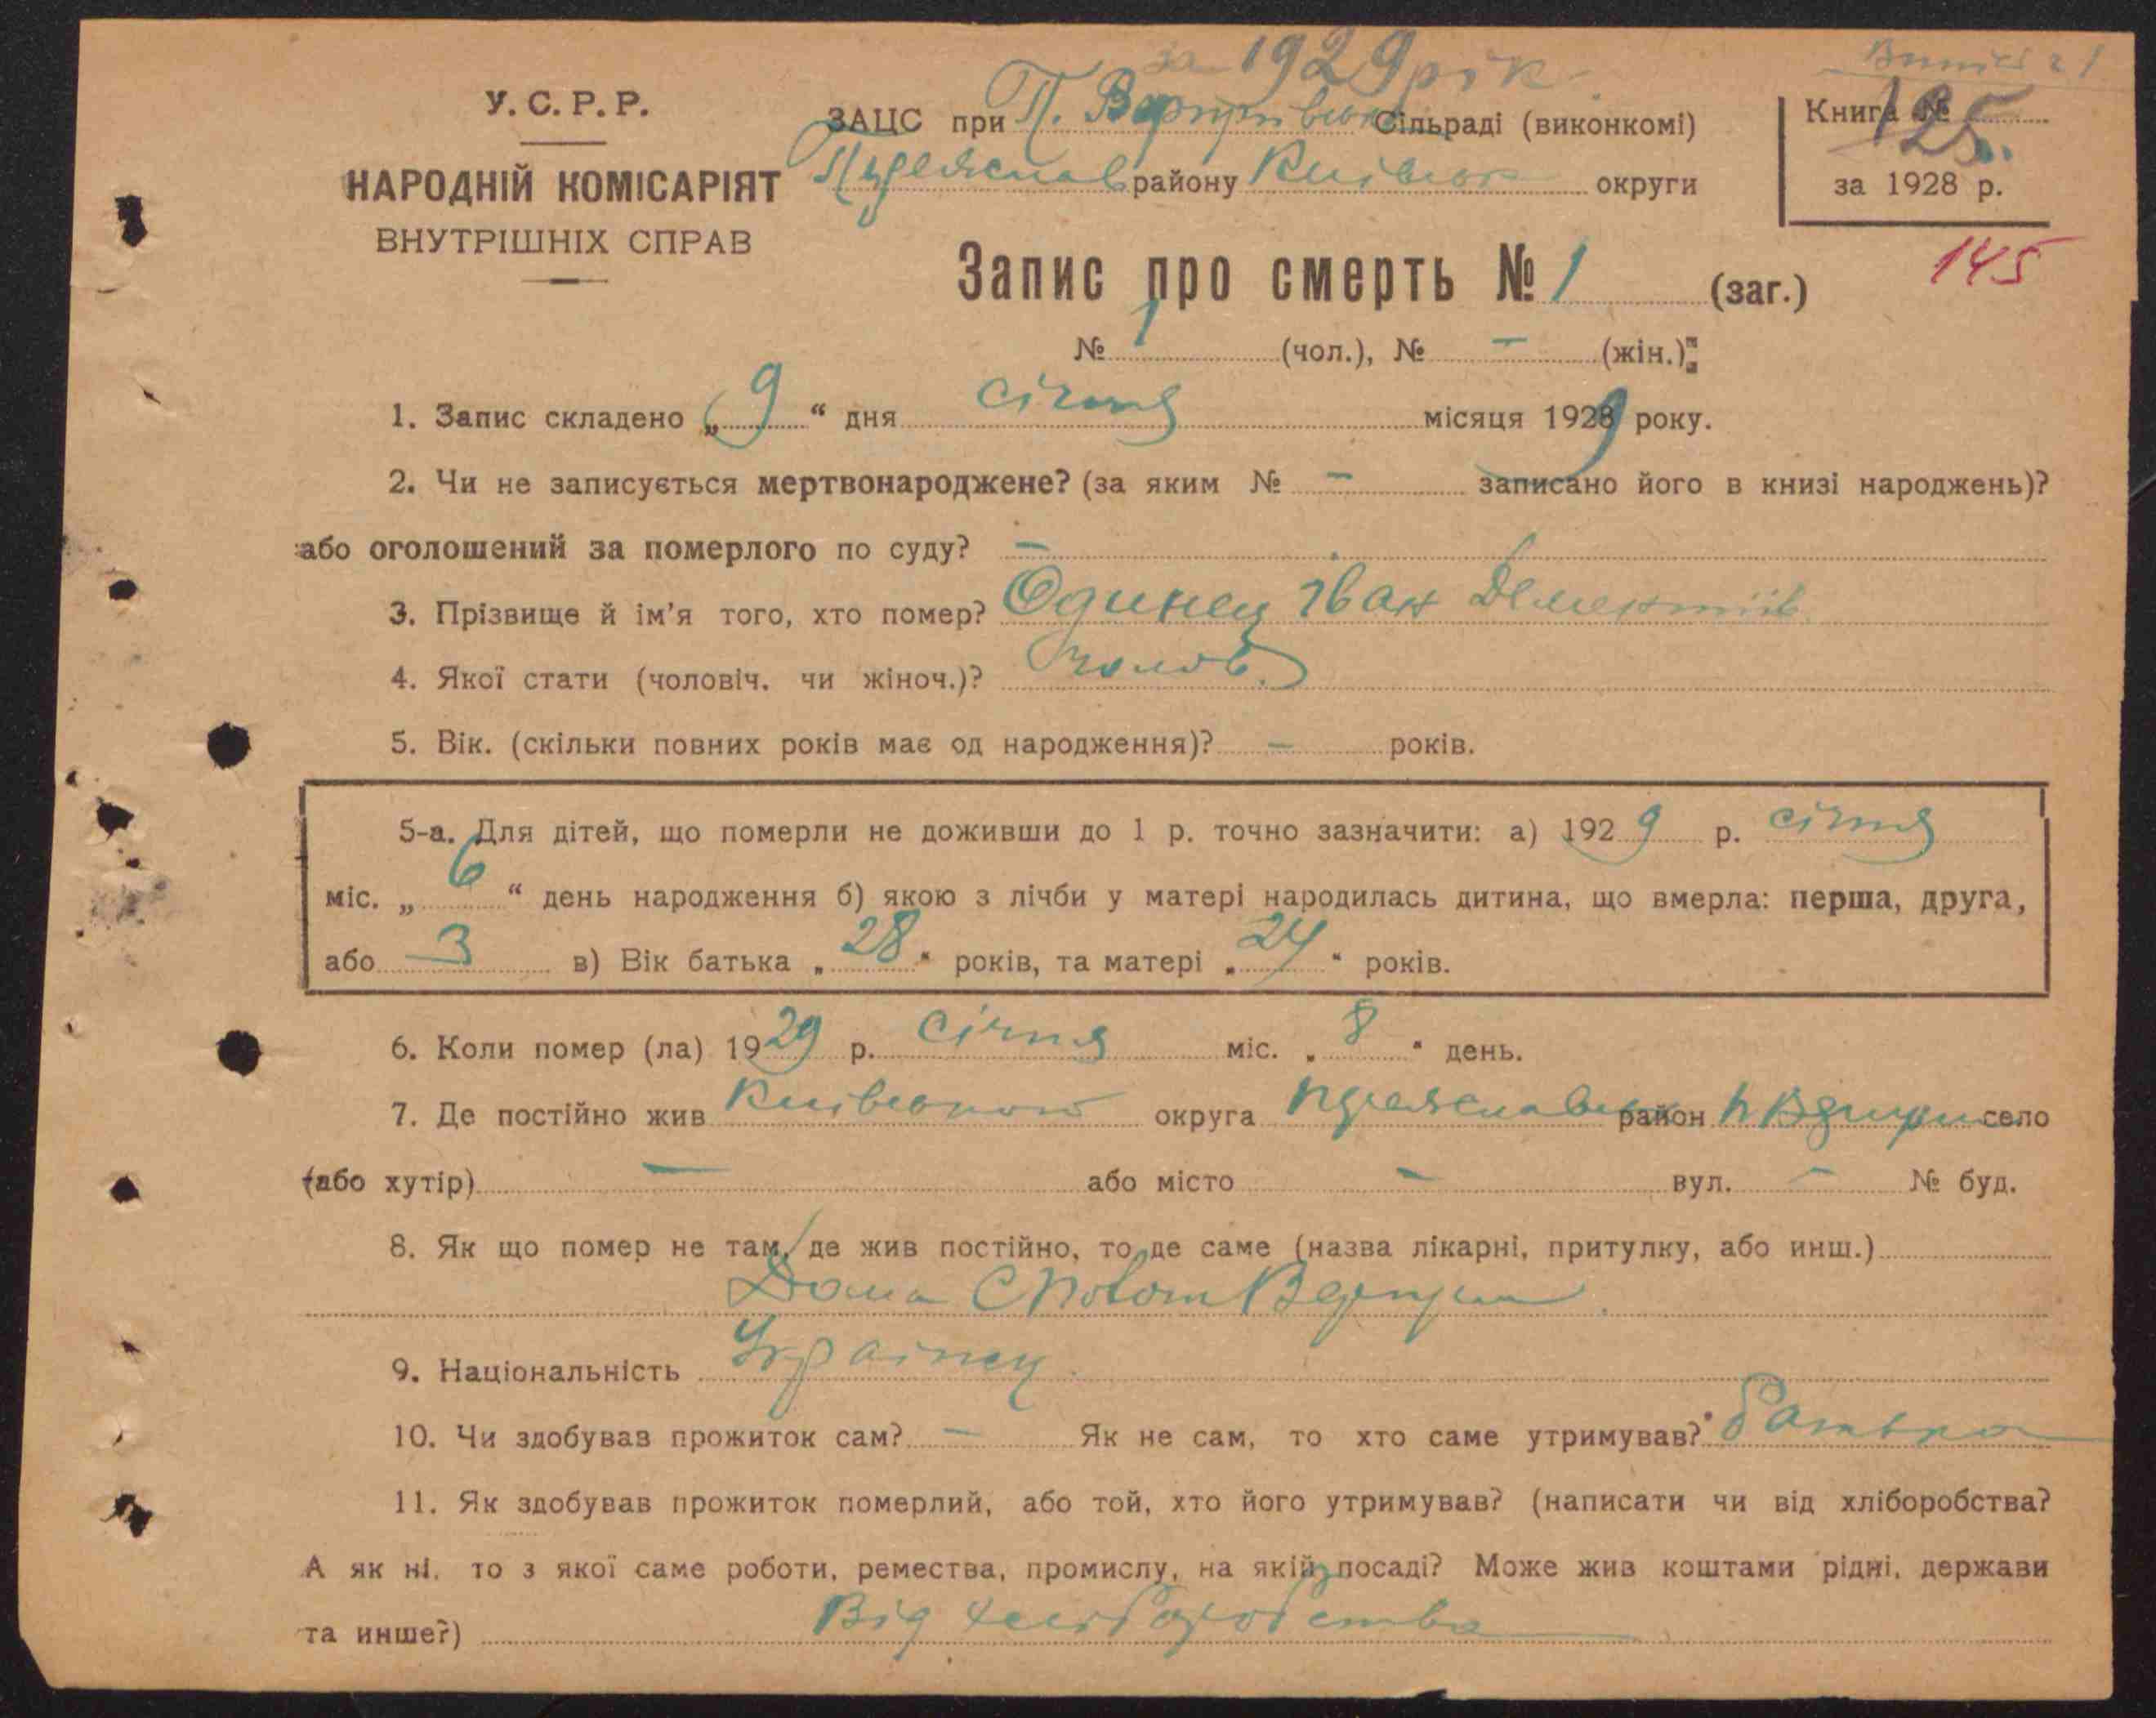 за 1929 рік
У. С. Р. Р.
НАРОДНІЙ КОМІСАРІЯТ
ВНУТРІШНІХ СПРАВ
ЗАЦС при П. Сільраді (виконкомі)
району Київськ округи
Книга № 125
за 1928 р.
145
Запис про смерть № 1 (заг.)
№ 1 (чол.), № — (жін.)
1. Запис складено „ 9 “ дня січня місяця 1929 року.
2. Чи не записується мертвонароджене? (за яким № — записано його в книзі народжень)?
або оголошений за померлого по суду? —
3. Прізвище й ім’я того, хто помер? Одинец Іван
4. Якої стати (чоловіч. чи жіноч.)? чолов.
5. Вік. (скільки повних років має од народження)? — років.
5-а. Для дітей, що померли не доживши до 1 р. точно зазначити: а) 1929 р. січня
міс. „ 6 “ день народження б) якою з лічби у матері народилась дитина, що вмерла: перша, друга,
або 3 в) Вік батька „ 28 “ років, та матері „ 24 “ років.
6. Коли помер (ла) 1929 р. січня міс. „ 8 “ день.
7. Де постійно жив Київської округа район село
(або хутір) — або місто — вул. — № буд.
8. Як що помер не там, де жив постійно, то де саме (назва лікарні, притулку, або инш.)
Дома
9. Національність Українец
10. Чи здобував прожиток сам? — Як не сам, то хто саме утримував? батько
11. Як здобував прожиток померлий, або той, хто його утримував? (написати чи від хліборобства?
А як ні, то з якої саме роботи, ремества, промислу, на якій посаді? Може жив коштами рідні, держави
та инше?) Від хліборобства